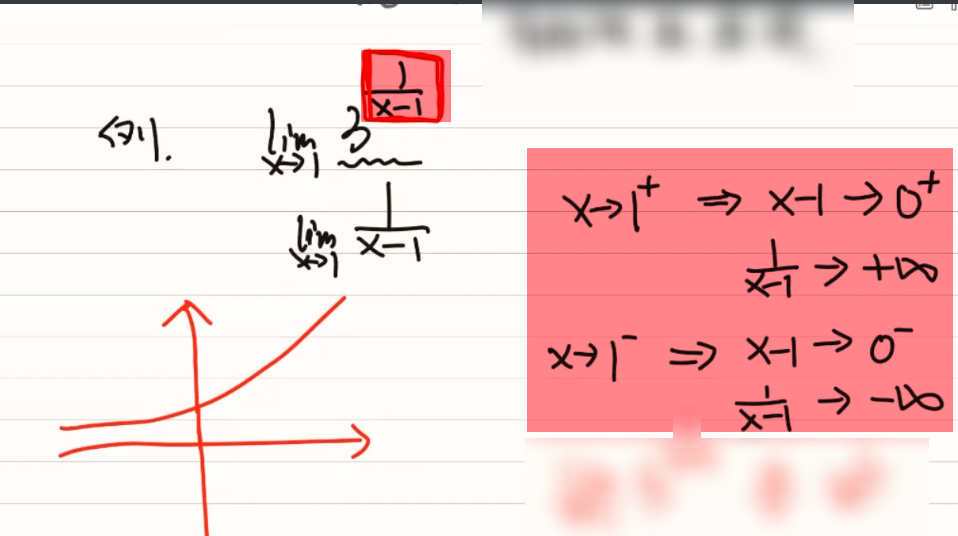 例1. lim x→1 3^(1/(x-1))
lim x→1 1/(x-1)
x→1⁺ ⇒ x-1 → 0⁺
1/(x-1) → +∞
x→1⁻ ⇒ x-1 → 0⁻
1/(x-1) → -∞